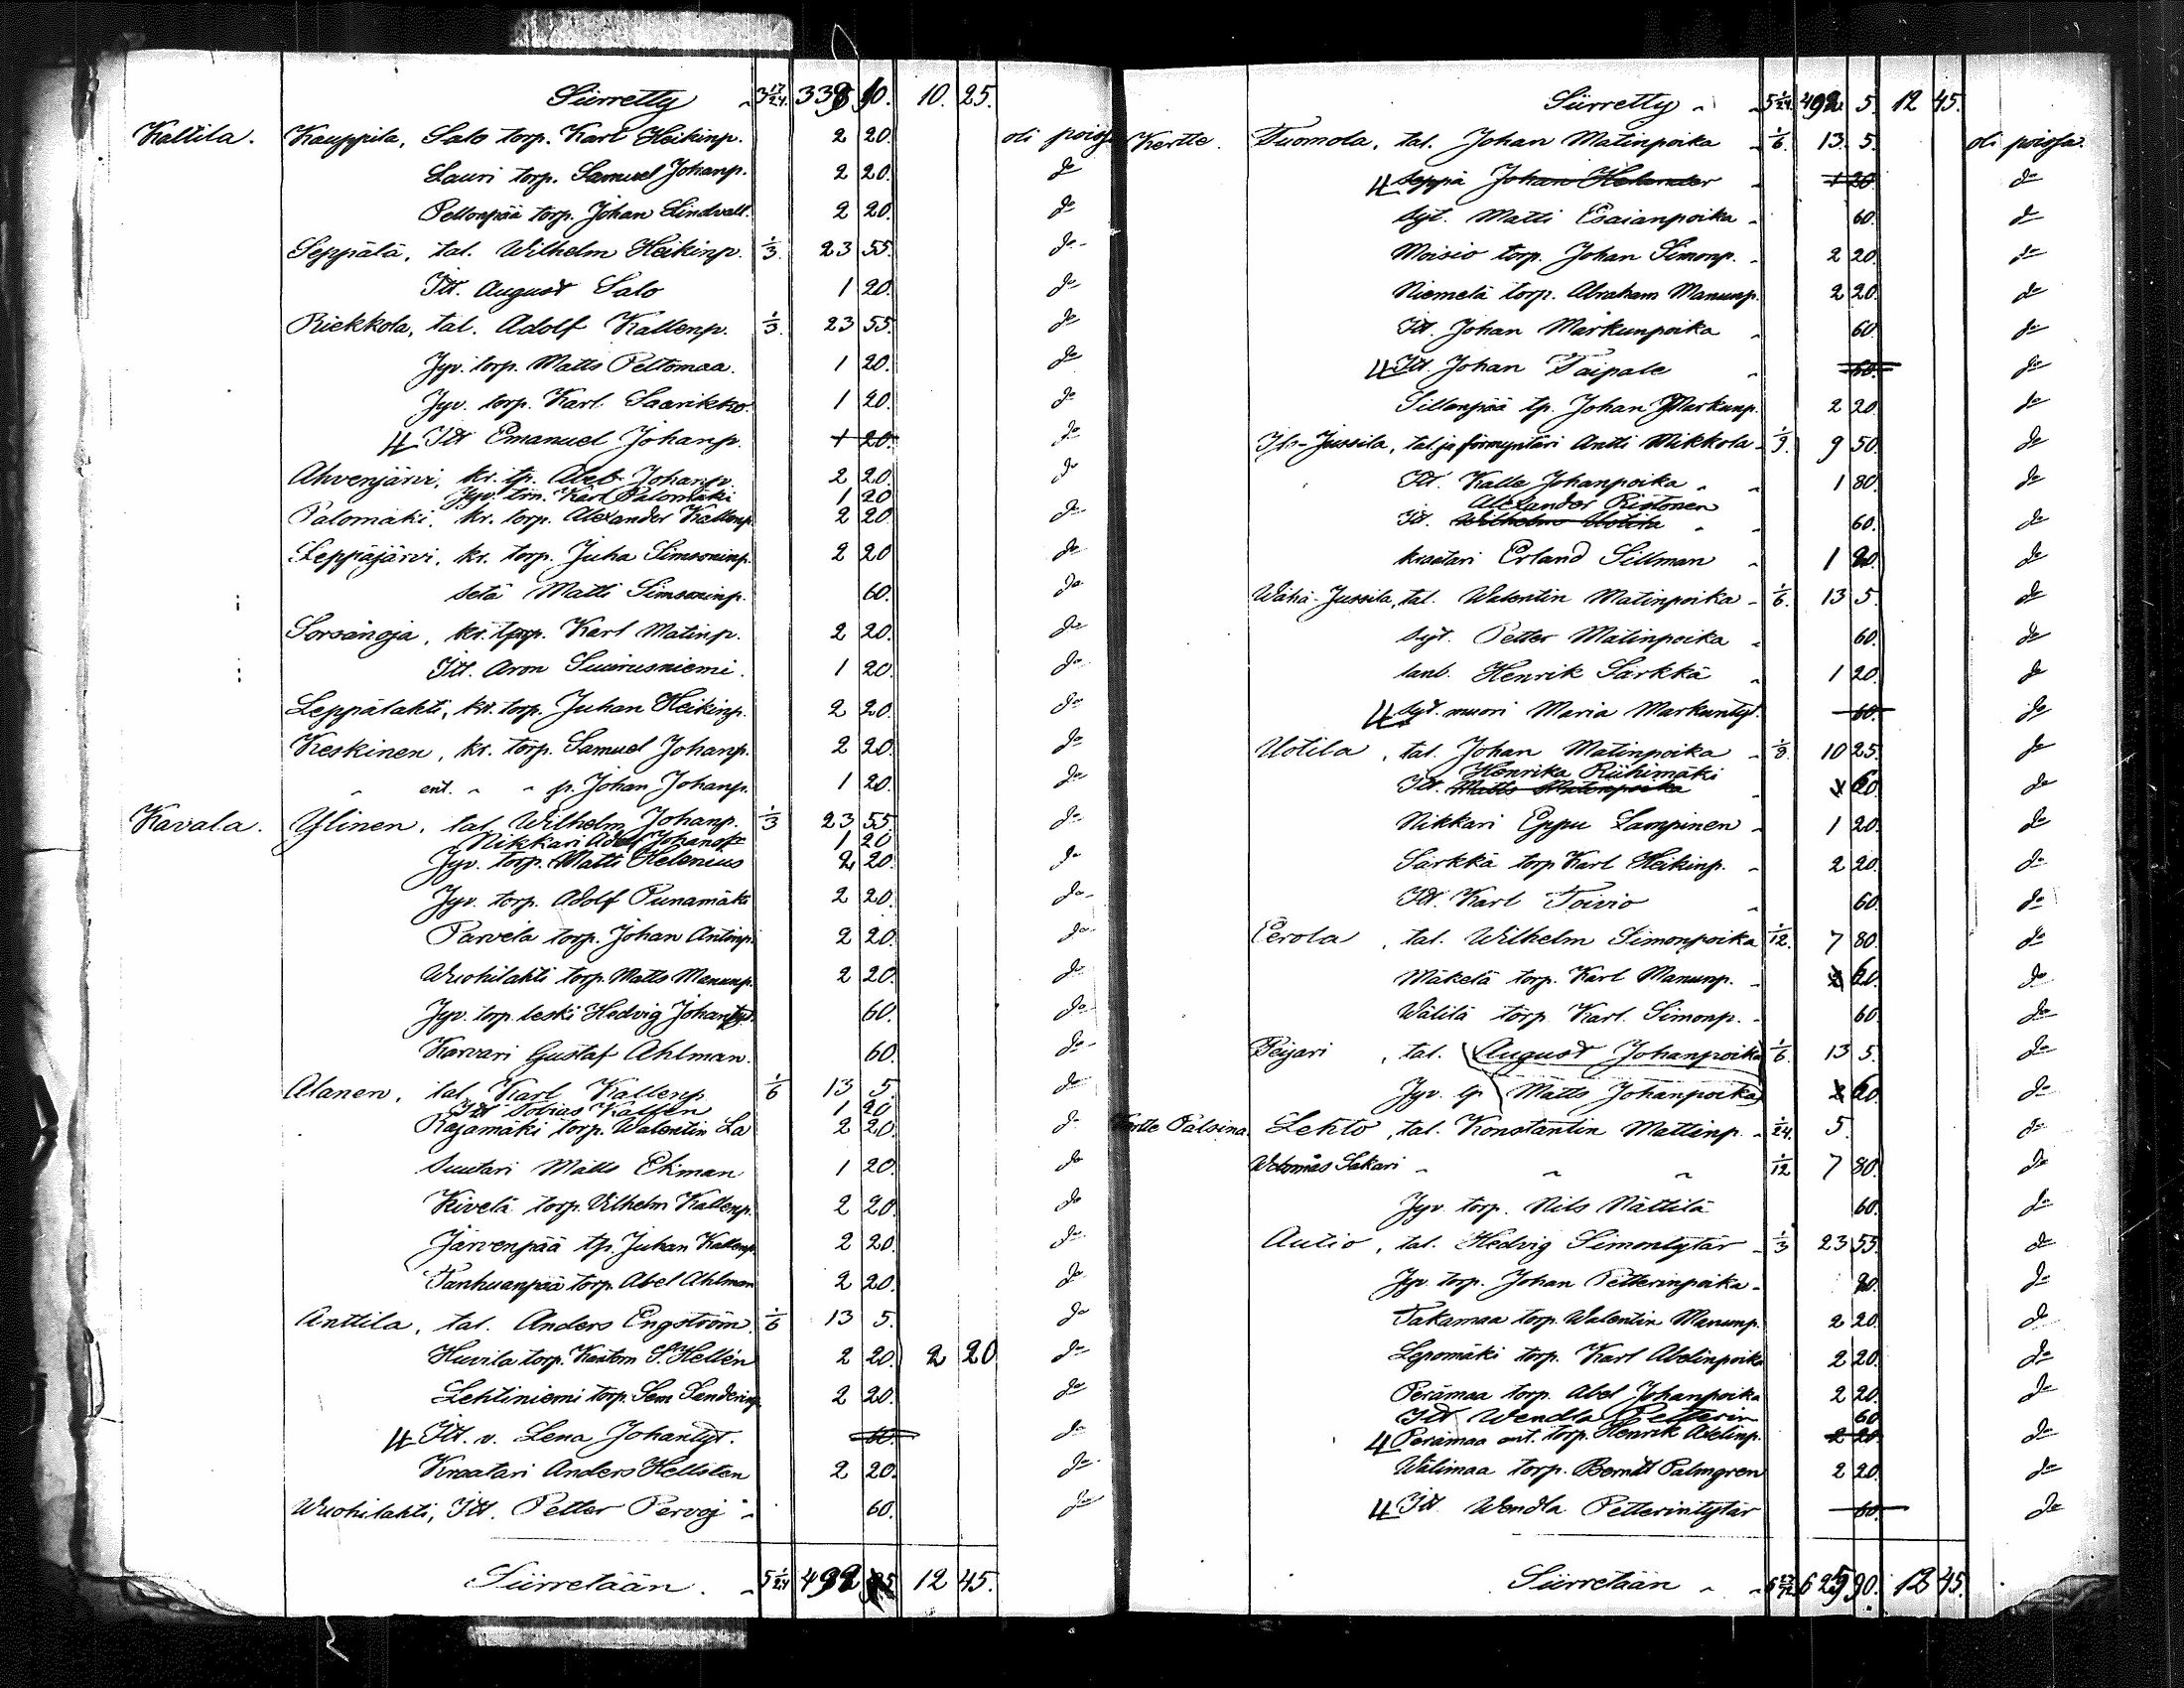 Siirretty 3 17/24. 10. 10. 25.
Kaltila. Kauppila, Salo torp. Karl Heikinp. 2 20. oli poissa
Lauri torp. Samuel Johanp. 2 20. do
Peltonpää torp. Johan Lindvall. 2 20. do
Seppälä, tal. Wilhelm Heikinp. 1/3. 23 55. do
Itt. August Salo 1 20. do
Riekkola, tal. Adolf Kallenp. 1/3. 23 55. do
Jyv. torp. Matts Peltomaa. 1 20. do
Jyv. torp. Karl Saarikko. 1 20. do
4 Itt Emanuel Johanp. 1 20. do
Ahvenjärvi, kr. tp. Abel Johanp. 2 20. do
Jyv. trn. Karl Palomäki 1 20
Palomäki, kr. torp. Alexander Kallenp. 2 20 do
Leppäjärvi, kr. torp. Juha Simsoninp. 2 20 do
setä Matti Simsoninp. 60. do
Sorsanoja, kr. torp. Karl Matinp. 2 20. do
Itt. Aron Suurusniemi. 1 20. do
Leppälahti, kr. torp. Juhan Heikinp. 2 20. do
Keskinen, kr. torp. Samuel Johanp. 2 20. do
" ent. " " p. Johan Johanp. 1 20. do
Kavala. Ylinen, tal. Wilhelm Johanp. 1/3 23 55. do
Nikkari Adolf 1 20
Jyv. torp. Matti Helenius 2 20. do
Jyv. torp. Adolf Punamäki 2 20. do
Parvela torp. Johan Antinp. 2 20. do
Wuohilahti torp. Matts Manunp. 2 20. do
Jyv. torp. leski Hedvig Johantyt. 60. do
Karvari Gustaf Ahlman. 60. do
Alanen, tal. Karl Kallenp. 1/6 13 5. do
Itt Tobias Kallen 1 20
Rajamäki torp. Walentin La 2 20. do
Suutari Matts Ekman 1 20. do
Kivelä torp. Vilhelm Kallenp. 2 20. do
Järvenpää tp. Juhan Kallenp. 2 20. do
Tanhuanpää torp. Abel Ahlman 2 20. do
Anttila, tal. Anders Engström. 1/6 13 5. do
Huvila torp. S. Hellén 2 20. 2 20 do
Lehtiniemi torp. Sem 2 20. do
4 Itt. v. Lena Johantyt. 60. do
Kraatari Anders Hellsten 2 20. do
Wuohilahti, Itt. Petter Pervoj " 60. do
Siirretään. 5 1/24 12 45.
Siirretty " 5 1/24. 5. 12 45.
Kertte. Tuomola, tal. Johan Matinpoika 1/6. 13. 5. oli poissa.
4 Seppä Johan Helander 1 20 do
Syt. Matti Esaianpoika 60. do
Moisio torp. Johan Simonp. 2 20. do
Niemelä torp. Abraham Manunp. 2 20. do
Itt. Johan Markunpoika 60 do
4 Itt. Johan Taipale 60. do
Sillanpää tp. Johan Markunp. 2 20. do
Iso-Jussila, tal ja förmyntäri Antti Mikkola 1/9. 9 50. do
Itt. Kalle Johanpoika " 1 80. do
Alexander Ristonen
Itt. Wilhelm Uotila " 60. do
kraatari Erland Sillman 1 20. do
Wähä-Jussila, tal. Walentin Matinpoika 1/6. 13 5. do
Syt. Petter Matinpoika 60. do
Henrik Särkkä 1 20. do
4 Syt. muori Maria Markuntyt. 60. do
Uotila, tal. Johan Matinpoika 1/8. 10 25. do
Henrika Riihimäki
Itt. Matts Matinpoika 60. do
Nikkari Eppu Lampinen 1 20. do
Särkkä torp. Karl Heikinp. 2 20. do
Itt. Karl Toivio 60. do
Eerola, tal. Wilhelm Simonpoika 1/12. 7 80. do
Mäkelä torp. Karl Manunp. 60. do
Wälilä torp. Karl. Simonp. 60. do
Peijari, tal. August Johanpoika 1/6. 13 5. do
Jyv. tp. Matts Johanpoika 60. do
Kertte Palsina. Lehto, tal. Konstantin Mattinp. 1/24. 5. do
Sakari " " " 1/12 7 80. do
Jyv. torp. Nils Nättilä 60. do
Autio, tal. Hedvig Simontytär 1/3 23 55. do
Jyv torp. Johan Petterinpoika 80. do
Takamaa torp. Walentin Manunp. 2 20. do
Lepomäki torp. Karl Abelinpoika 2 20. do
Perämaa torp. Abel Johanpoika 2 20. do
Itt Wendla Petterin 60
4 Perämaa ent. torp. Henrik Abelinp. 2 20. do
Wälimaa torp. Berndt Palmgren 2 20. do
4 Itt. Wendla Petterintytär 60. do
Siirretään " 90. 45.